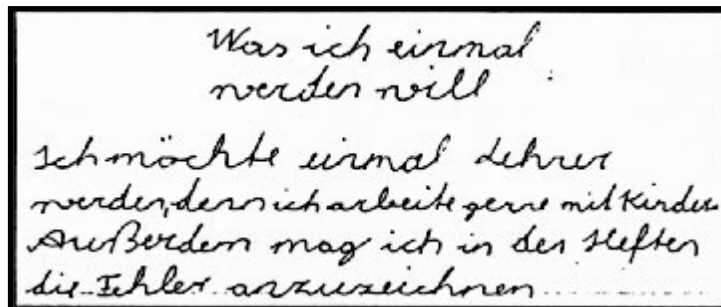 Was ich einmal
werden will
Ich möchte einmal Lehrer
werden, denn ich arbeite gerne mit Kinder
Außerdem mag ich in den Heften
die Fehler anzuzeichnen